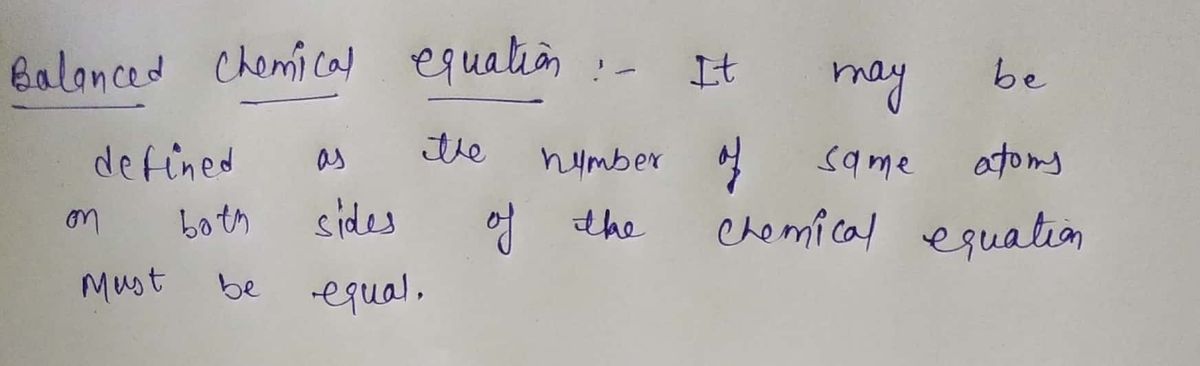 Balanced Chemical equation :- It may be
defined as the number of same atoms
on both sides of the chemical equation
Must be equal.